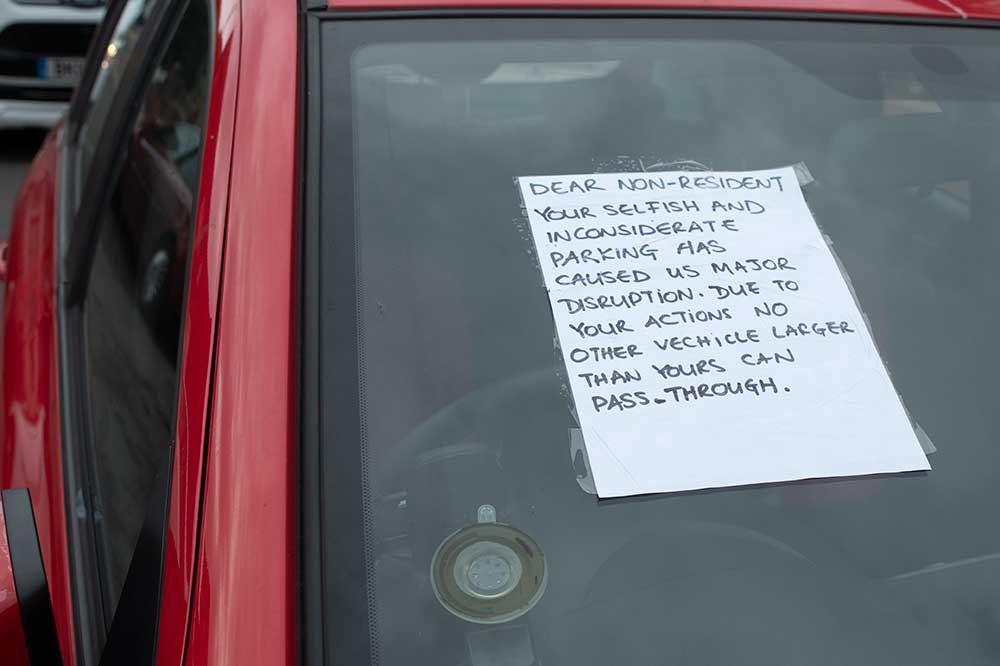 DEAR NON-RESIDENT
YOUR SELFISH AND
INCONSIDERATE
PARKING HAS
CAUSED US MAJOR
DISRUPTION. DUE TO
YOUR ACTIONS NO
OTHER VECHICLE LARGER
THAN YOURS CAN
PASS-THROUGH.